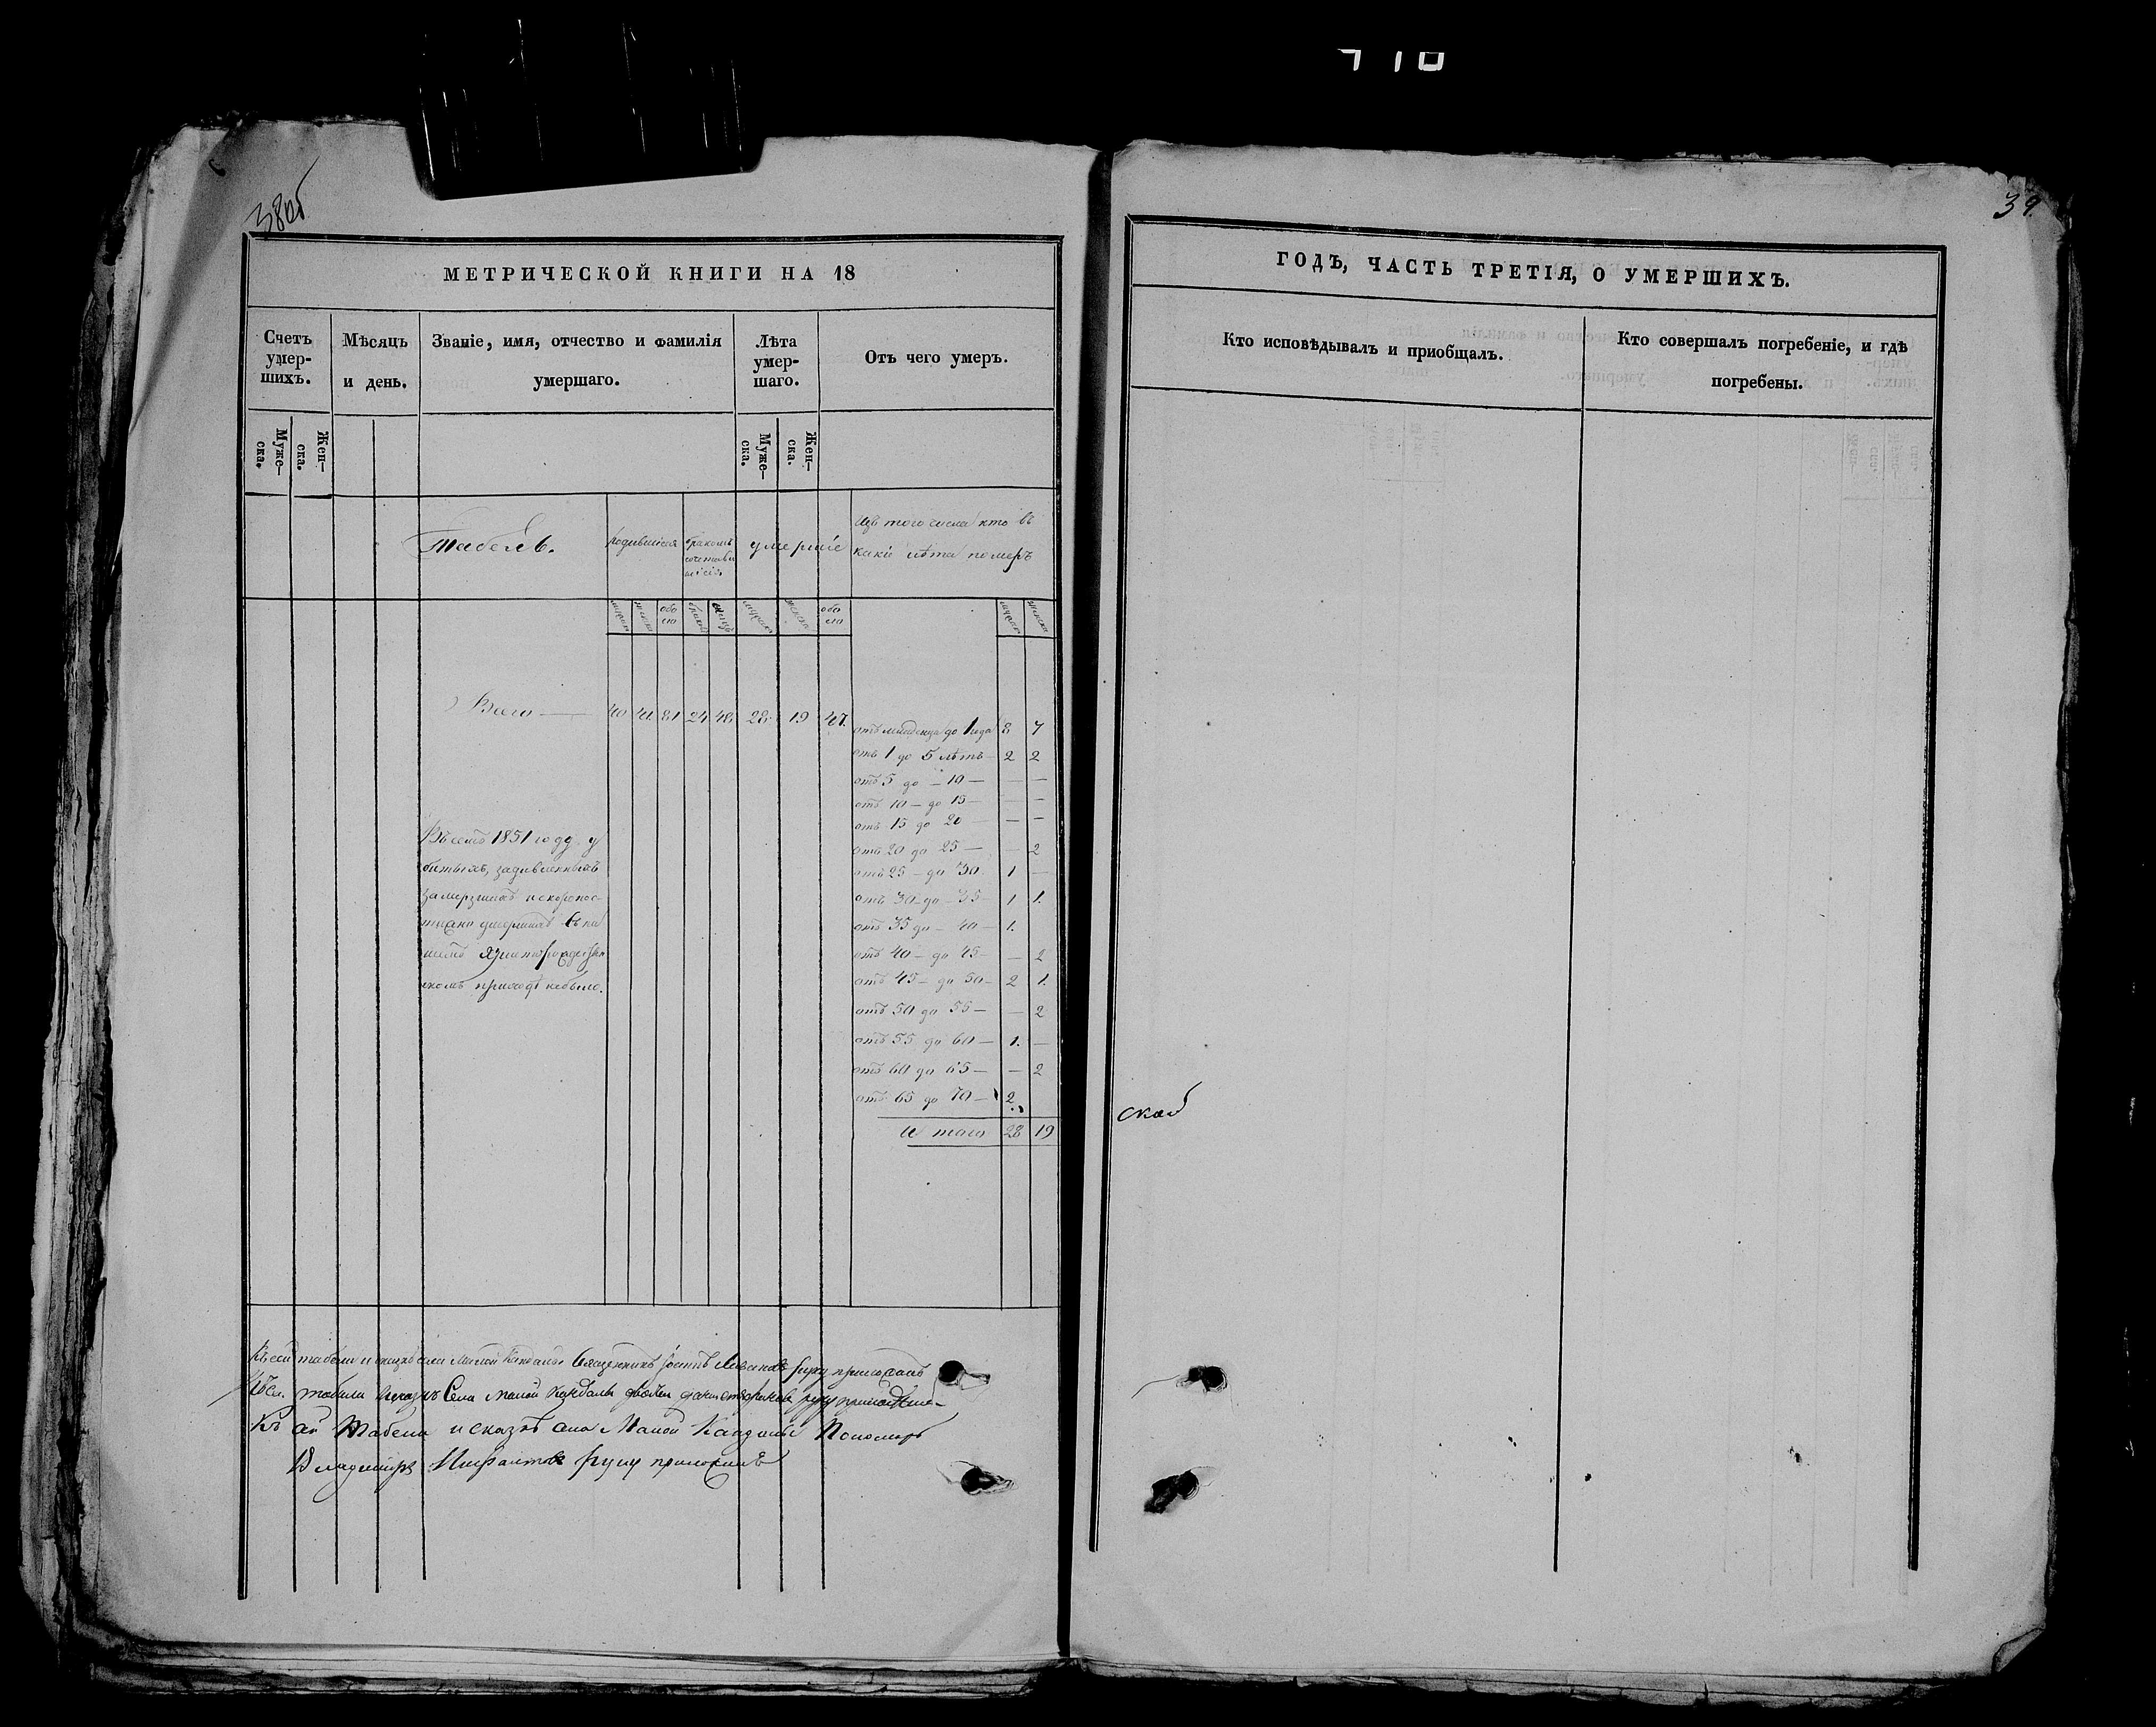 38об
МЕТРИЧЕСКОЙ КНИГИ НА 18
Счетъ умер-шихъ.
Мѣсяцъ и день.
Званіе, имя, отчество и фамилія умершаго.
Лѣта умер-шаго.
Отъ чего умеръ.
Муже-ска.
Жен-ска.
Муже-ска.
Жен-ска.
Табель.
родившіеся
бракомъ
умершіе
Изъ того числа кто въ
какіе лѣта померъ
обо его
обо его
Всего — 40 41 81 24 48 28 19 47.
отъ младенца до 1 года 8 7
отъ 1 до 5 лѣтъ 2 2
отъ 5 до — 10 — — —
отъ 10 — до 15 — — —
отъ 15 до 20 — — —
отъ 20 до 25 — — 2
отъ 25 — до 30. 1 —
отъ 30 — до — 35 1 1.
отъ 35 до — 40 — 1.
отъ 40 — до 45 — — 2
отъ 45 — до 50 — 2 1.
отъ 50 до 55 — — 2
отъ 55 до 60 — 1. —
отъ 60 до 65 — — 2
отъ 65 до 70 — 2
Итого 28 19
Въ семъ 1851 году у
битыхъ, задавленныхъ
замерзшихъ и скоропос
тижно умершихъ въ на
шемъ
приходѣ небыло.
Къ сей табели и сказкѣ села Малой Кандалы Священникъ руку приложилъ
табели и сказкѣ Села Малой Кандалы руку
Къ сей Табели и сказкѣ села Малой Кандалы Пономарь
Владиміръ руку приложилъ
39.
ГОДЪ, ЧАСТЬ ТРЕТІЯ, О УМЕРШИХЪ.
Кто исповѣдывалъ и пріобщалъ.
Кто совершалъ погребеніе, и гдѣ погребены.